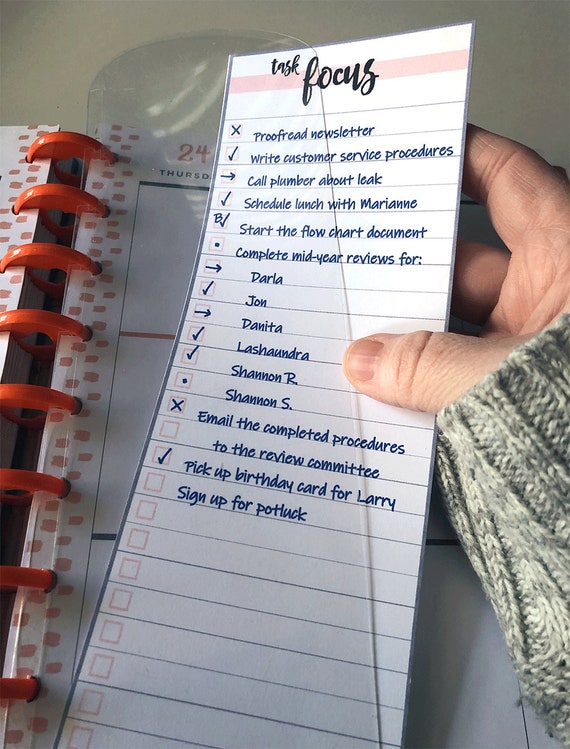 task focus
24
THURSD
Proofread newsletter
Write customer service procedures
Call plumber about leak
Schedule lunch with Marianne
Start the flow chart document
Complete mid-year reviews for:
Darla
Jon
Danita
Lashaundra
Shannon R.
Shannon S.
Email the completed procedures
to the review committee
Pick up birthday card for Larry
Sign up for potluck